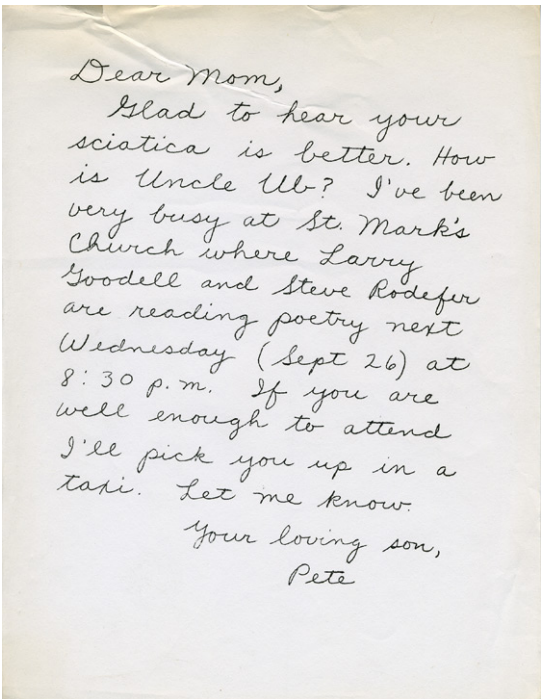 Dear Mom,
Glad to hear your
sciatica is better. How
is Uncle Ub? I've been
very busy at St. Mark's
Church where Larry
Goodell and Steve Rodefer
are reading poetry next
Wednesday (Sept 26) at
8:30 p.m. If you are
well enough to attend
I'll pick you up in a
taxi. Let me know.
Your loving son,
Pete